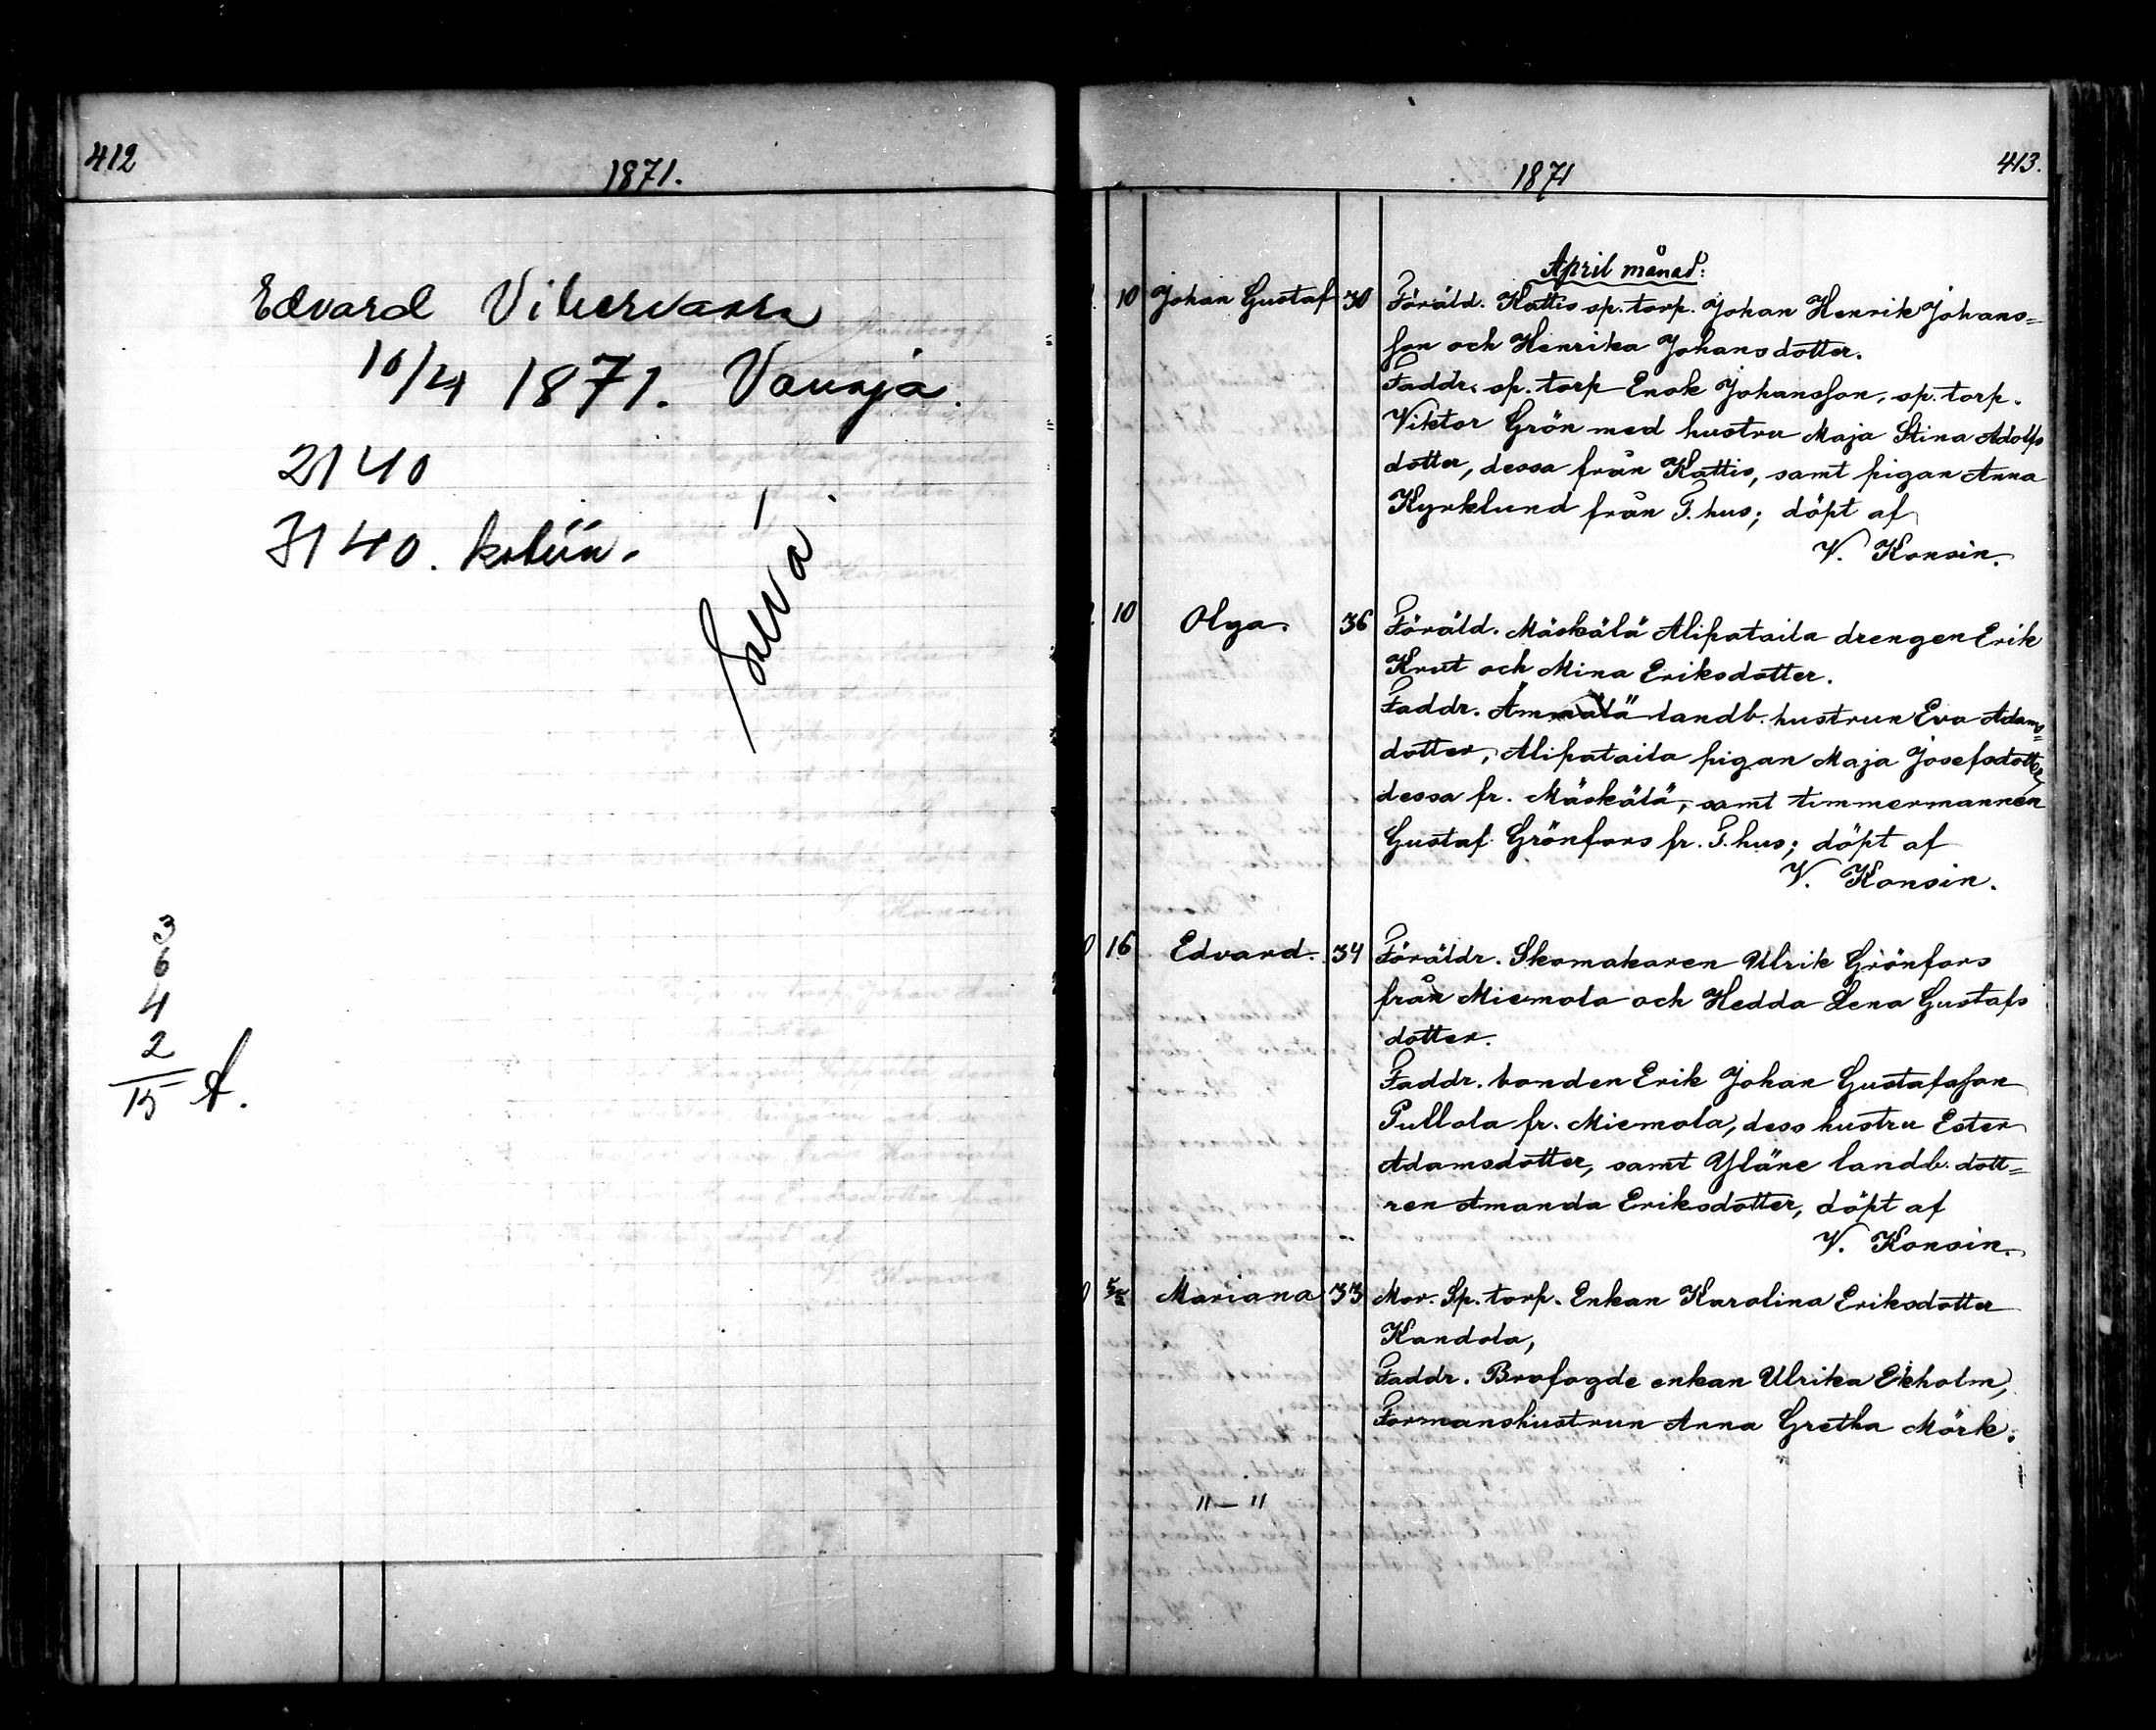 412
1871.
Edvard Vihervaara
10/4 1871. Vaunja.
2140
7140. kotiin.
3
6
4
2
15 A.
1871
413.
April månad:
10 Johan Gustaf 30 Föräld. Kattis sp. torp. Johan Henrik Johans=
son och Henrika Johansdotter.
Faddr. sp. torp Enok Johansson, sp. torp.
Viktor Grön med hustru Maja Stina Adolfs
dotter, dessa från Kattis, samt pigan Anna
Kyrklund från T. hus; döpt af
V. Konsin.
10 Olga. 36 Föräld. Mäskälä Alipataila drengen Erik
Krut och Mina Eriksdotter.
Faddr. Ämmälä landb. hustrun Eva Adams=
dotter, Alipataila pigan Maja Josefsdotter
dessa fr. Mäskälä, samt timmermannen
Gustaf Grönfors fr. T. hus; döpt af
V. Konsin.
16 Edvard. 34 Föräldr. Skomakaren Ulrik Grönfors
från Miemola och Hedda Lena Gustafs
dotter.
Faddr. bonden Erik Johan Gustafsson
Pullola fr. Miemola, dess hustru Ester
Adamsdotter, samt Yläne landb. dott=
ren Amanda Eriksdotter, döpt af
V. Konsin.
Mariana 33 Mor. Sp. torp. Enkan Karolina Eriksdotter
Kandola,
Faddr. Brofogde enkan Ulrika Ekholm,
Formanshustrun Anna Gretha Mörk.
"—"